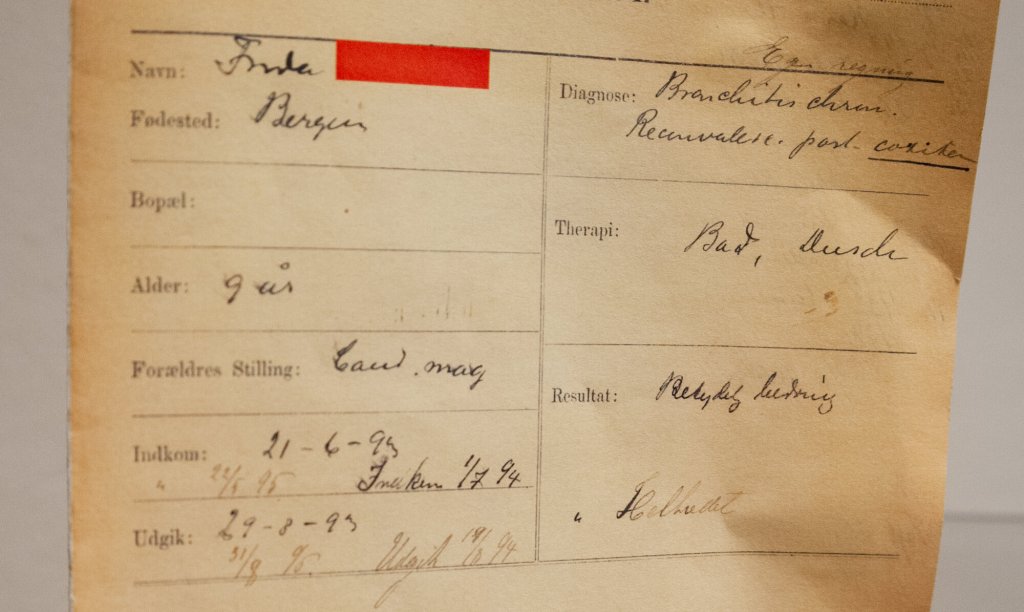 Navn: Frida
Fødested: Bergen
Bopæl:
Alder: 9 år
Forældres Stilling: Cand. mag
Indkom: 21-6-93
" 22/5 95 1/7 94
Udgik: 29-8-93
31/8 95. Udgik 94
Egen regning
Diagnose: Bronchitis chron.
Reconvalesc. post coxiten
Therapi: Bad, Dusch
Resultat: Betydelig bedring
" Helbredet